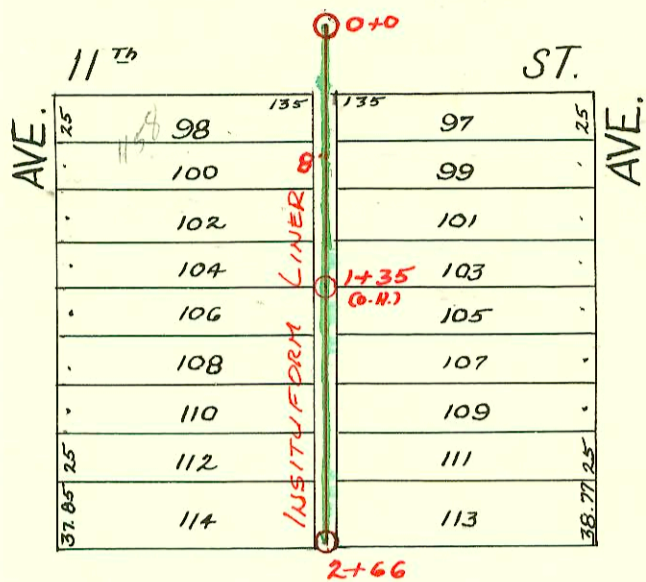 0+0
11 Th ST.
AVE. AVE.
135 135
25 98 97 25
8"
100 99
102 101
104 103
1+35
(O.H.)
106 105
108 107
110 109
25 112 111 25
37.85 114 113 38.77
INSITUFORM LINER
2+66